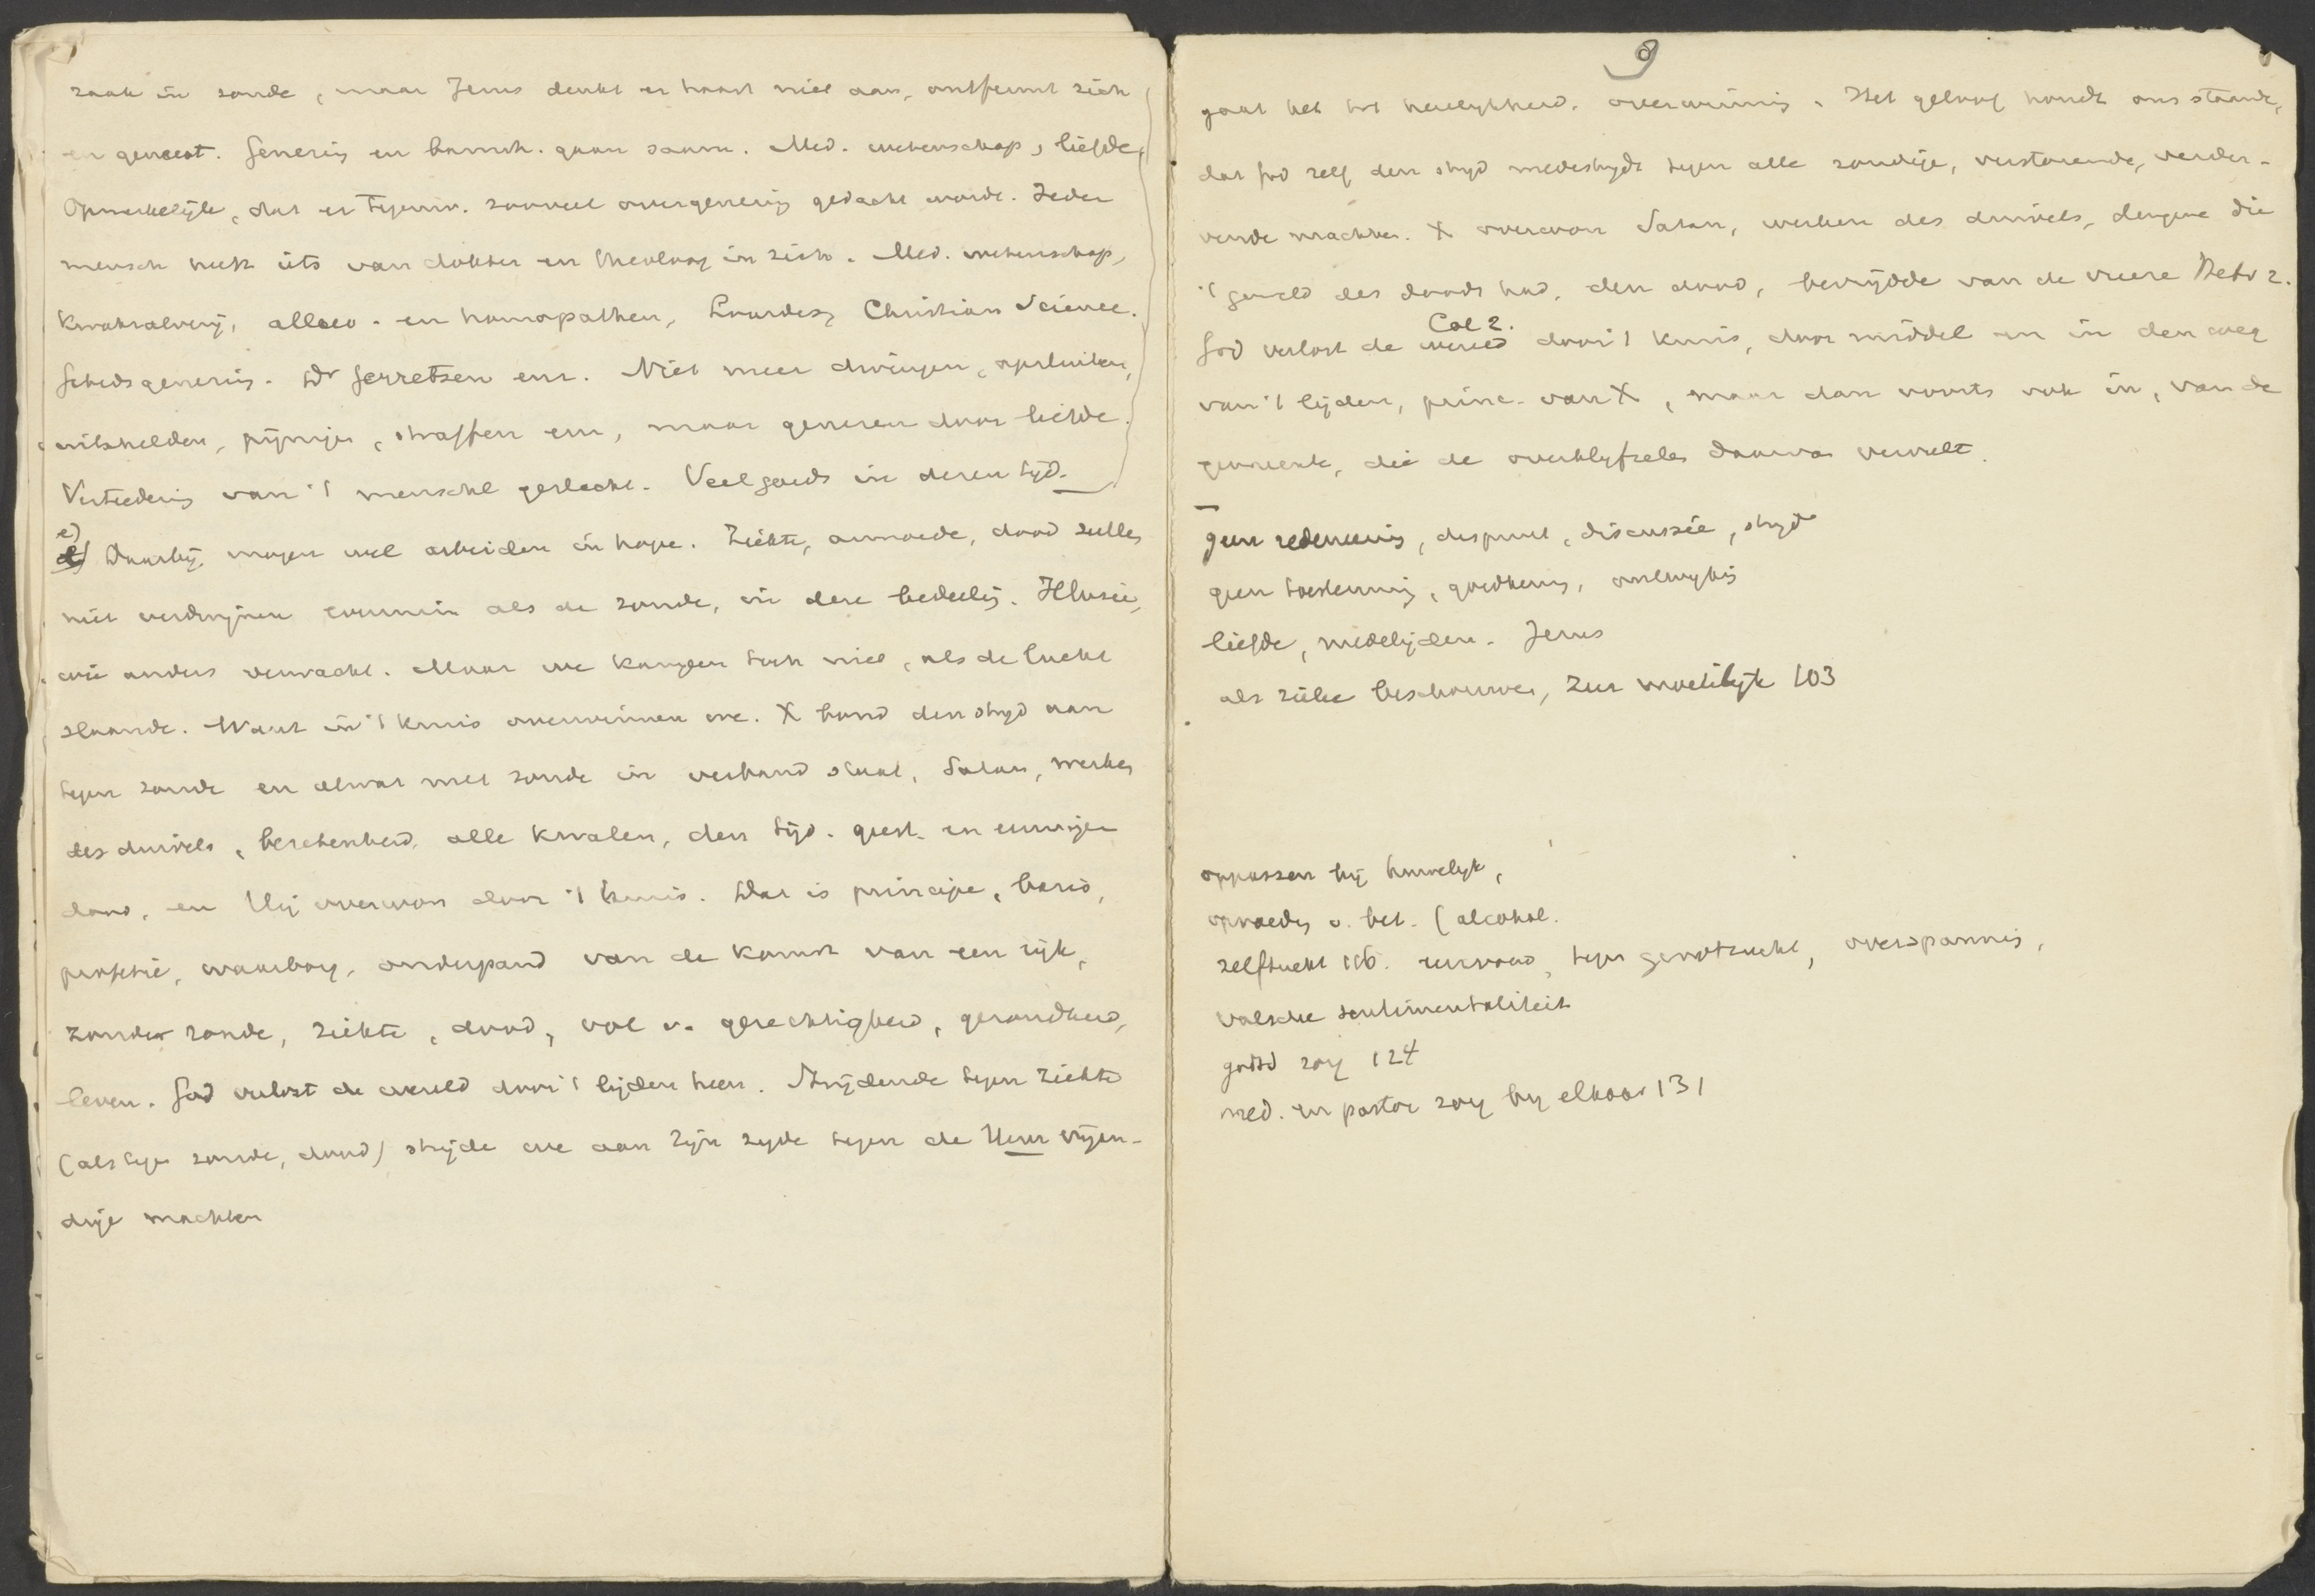 zaak in zonde, maar Jezus denkt er haast niet aan, ontfermt zich
en geneest. Genezing en barmh. gaan saam. Med. wetenschap, liefde,
Opmerkelijk, dat er tegenw. zooveel over genezing gedacht wordt. Ieder
mensch heeft iets van dokter en theoloog in zich. Med. wetenschap,
kwakzalverij, alloeo- en homoopathen, Lourdes, Christian Science.
Gebedsgenezing. Dr Gerretsen enz. Niet meer dwingen, opsluiten,
uitschelden, pijnigen, straffen enz, maar genezen door liefde.
Verteedering van 't menschel geslacht. Veel goeds in dezen tijd.
e)
Daarbij mogen wel arbeiden in hope. Ziekte, armoede, dood zullen
niet verdwijnen evenmin als de zonde, in deze bedeeling. Illusie,
wie anders verwacht. Maar we kampen toch niet, als de lucht
slaande. Want in 't kruis overwinnen we. X bond den strijd aan
tegen zonde en alwat met zonde in verband staat, Satan, werken
des duivels, bezetenheid, alle kwalen, den tijd. geest. en eeuwigen
dood, en Hij overwon door 't kruis. Dat is principe, basis,
profetie, waarborg, onderpand van de komst van een rijk,
zonder zonde, ziekte, dood, vol v. gerechtigheid, gezondheid,
leven. God verlost de wereld door 't lijden heen. Strijdende tegen ziekte
(als tegen zonde, dood) strijde we aan Zijn zijde tegen de Hem vijan-
dige machten
9
gaat het tot heerlijkheid, overwinning. Het geloof houdt ons staande,
dat God zelf den strijd medestrijdt tegen alle zondige, verstorende, verder-
vende machten. X overwon Satan, werken des duivels, dengene die
't geweld des doods had, den dood, bevrijdde van de vreeze Hebr 2.
Col 2.
God verlost de wereld door 't kruis, door middel en in den weg
van 't lijden, princ. van X, maar dan voorts ook in, van de
gemeente, die de overblijfselen daarvan vervult.
geen redeneering, dispuut, discussie, strijd
geen toestemming, goedkeuring,
liefde, medelijden. Jezus
als zieke beschouwen, zeer moeilijk 103
oppassen bij huwelijk,
opvoeding v. bel. (alcohol.
zelftucht 116. eenvoud, tegen genotzucht, overspanning,
valsche sentimentaliteit
godsd zorg 124
med. en pastor zorg bij elkaar 131